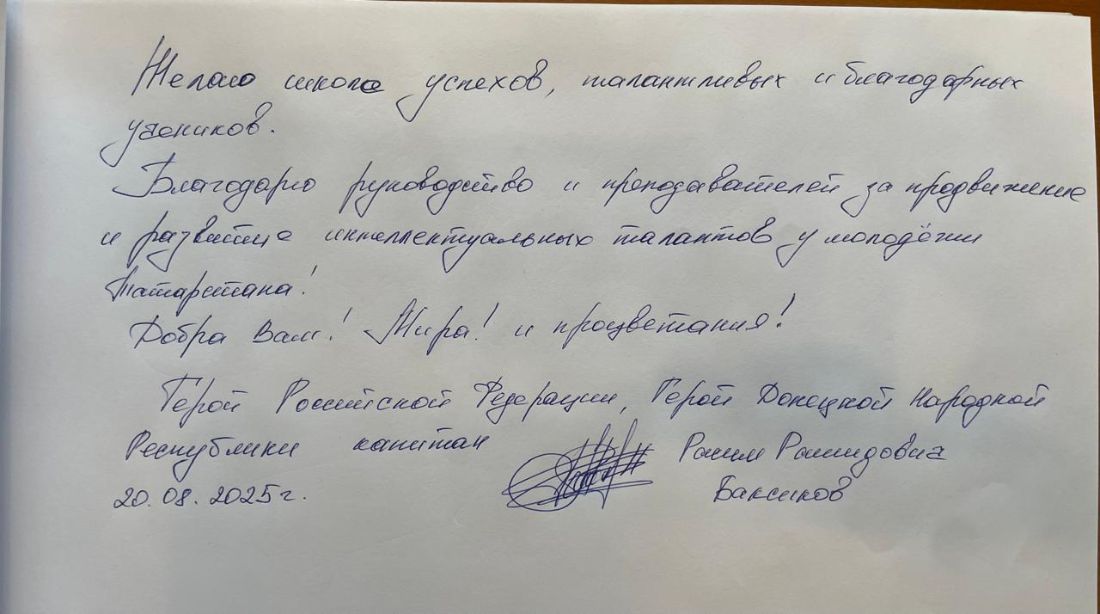 Желаю школе успехов, талантливых и благодарных
учеников.
Благодарю руководство и преподавателей за продвижение
и развитие интеллектуальных талантов у молодёжи
Татарстана!
Добра Вам! Мира! и процветания!
Герой Российской Федерации, Герой Донецкой Народной
Республики капитан Расим Рашидович
20.08.2025г. Баксиков